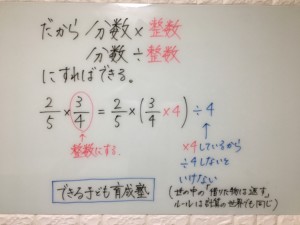 だから 分数×整数
分数÷整数
にすればできる。
2/5 × 3/4 = 2/5 × (3/4 ×4) ÷4
↑ ↑
整数にする ×4しているから
÷4しないと
いけない
(世の中の「借りた物は返す」
ルールは計算の世界でも同じ)
できる子ども育成塾